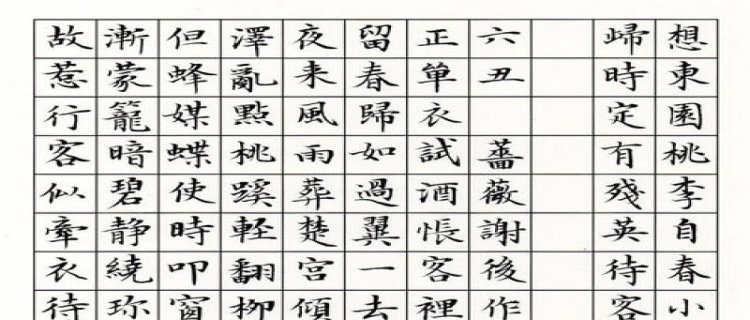 想東園桃李自春小
歸時定有殘英待客
六丑 薔薇謝後作
正單衣試酒悵客裡
留春歸如過翼一去
夜来風雨葬楚宮傾
澤亂點桃蹊軽翻柳
但蜂媒蝶使時叩窗
漸蒙籠暗碧静繞珎
故惹行客似牽衣待